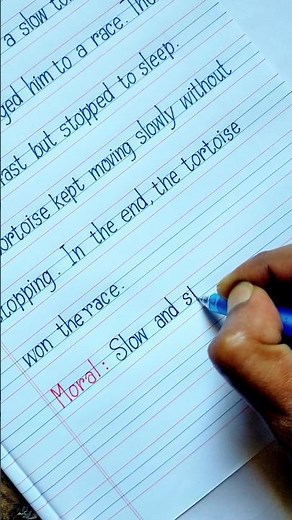 a slow to
ged him to a race. The
ast but stopped to sleep.
ortoise kept moving slowly without
topping. In the end, the tortoise
won the race.
Moral: Slow and sl